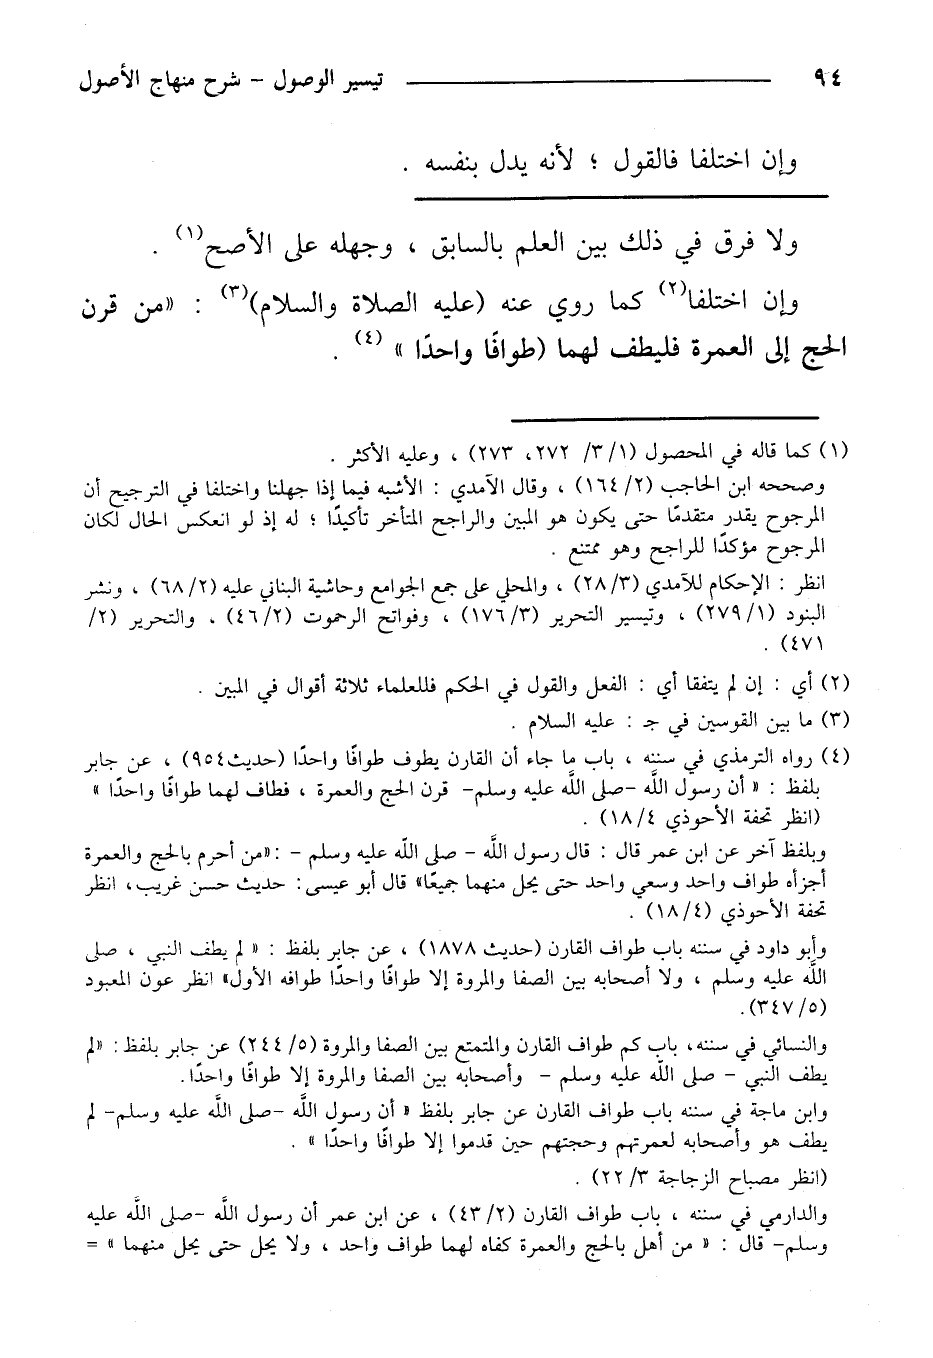 ٩٤ تيسير الوصول – شرح منهاج الأصول
وإن اختلفا فالقول ؛ لأنه يدل بنفسه .
ولا فرق في ذلك بين العلم بالسابق ، وجهله على الأصح(١) .
وإن اختلفا(٢) كما روي عنه (عليه الصلاة والسلام)(٣) : «من قرن
الحج إلى العمرة فليطف لهما (طوافًا واحدًا » (٤) .
(١) كما قاله في المحصول (١/ ٣/ ٢٧٢، ٢٧٣) ، وعليه الأكثر .
وصححه ابن الحاجب (٢/ ١٦٤) ، وقال الآمدي : الأشبه فيما إذا جهلنا واختلفا في الترجيح أن
المرجوح يقدر متقدمًا حتى يكون هو المبين والراجح المتأخر تأكيدًا ؛ له إذ لو انعكس الحال لكان
المرجوح مؤكدًا للراجح وهو ممتنع .
انظر : الإحكام للآمدي (٣/ ٢٨) ، والمحلي على جمع الجوامع وحاشية البناني عليه (٢/ ٦٨) ، ونشر
البنود (١/ ٢٧٩) ، وتيسير التحرير (٣/ ١٧٦) ، وفواتح الرحموت (٢/ ٤٦) ، والتحرير (٢/
٤٧١) .
(٢) أي : إن لم يتفقا أي : الفعل والقول في الحكم فللعلماء ثلاثة أقوال في المبين .
(٣) ما بين القوسين في جـ : عليه السلام .
(٤) رواه الترمذي في سننه ، باب ما جاء أن القارن يطوف طوافًا واحدًا (حديث٩٥٤) ، عن جابر
بلفظ : « أن رسول الله -صلى الله عليه وسلم- قرن الحج والعمرة ، فطاف لهما طوافًا واحدًا »
(انظر تحفة الأحوذي ٤/ ١٨) .
وبلفظ آخر عن ابن عمر قال : قال رسول الله – صلى الله عليه وسلم – :«من أحرم بالحج والعمرة
أجزأه طواف واحد وسعي واحد حتى يحل منهما جميعًا» قال أبو عيسى: حديث حسن غريب، انظر
تحفة الأحوذي (٤/ ١٨) .
وأبو داود في سننه باب طواف القارن (حديث ١٨٧٨) ، عن جابر بلفظ : « لم يطف النبي ، صلى
الله عليه وسلم ، ولا أصحابه بين الصفا والمروة إلا طوافًا واحدًا طوافه الأول» انظر عون المعبود
(٥/ ٣٤٧).
والنسائي في سننه، باب كم طواف القارن والمتمتع بين الصفا والمروة (٥/ ٢٤٤) عن جابر بلفظ: «لم
يطف النبي – صلى الله عليه وسلم – وأصحابه بين الصفا والمروة إلا طوافًا واحدًا.
وابن ماجة في سننه باب طواف القارن عن جابر بلفظ « أن رسول الله -صلى الله عليه وسلم- لم
يطف هو وأصحابه لعمرتهم وحجتهم حين قدموا إلا طوافًا واحدًا » .
(انظر مصباح الزجاجة ٣/ ٢٢) .
والدارمي في سننه ، باب طواف القارن (٢/ ٤٣) ، عن ابن عمر أن رسول الله -صلى الله عليه
وسلم- قال : « من أهل بالحج والعمرة كفاه لهما طواف واحد ، ولا يحل حتى يحل منهما » =